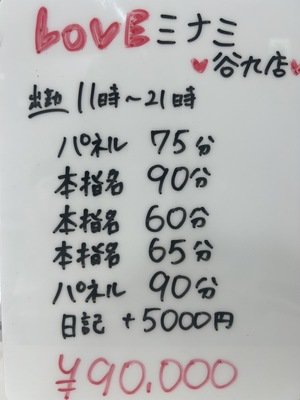 LOVEミナミ
♥谷九店♥
出勤 11時~21時
パネル 75分
本指名 90分
本指名 60分
本指名 65分
パネル 90分
日記 +5000円
¥90.000